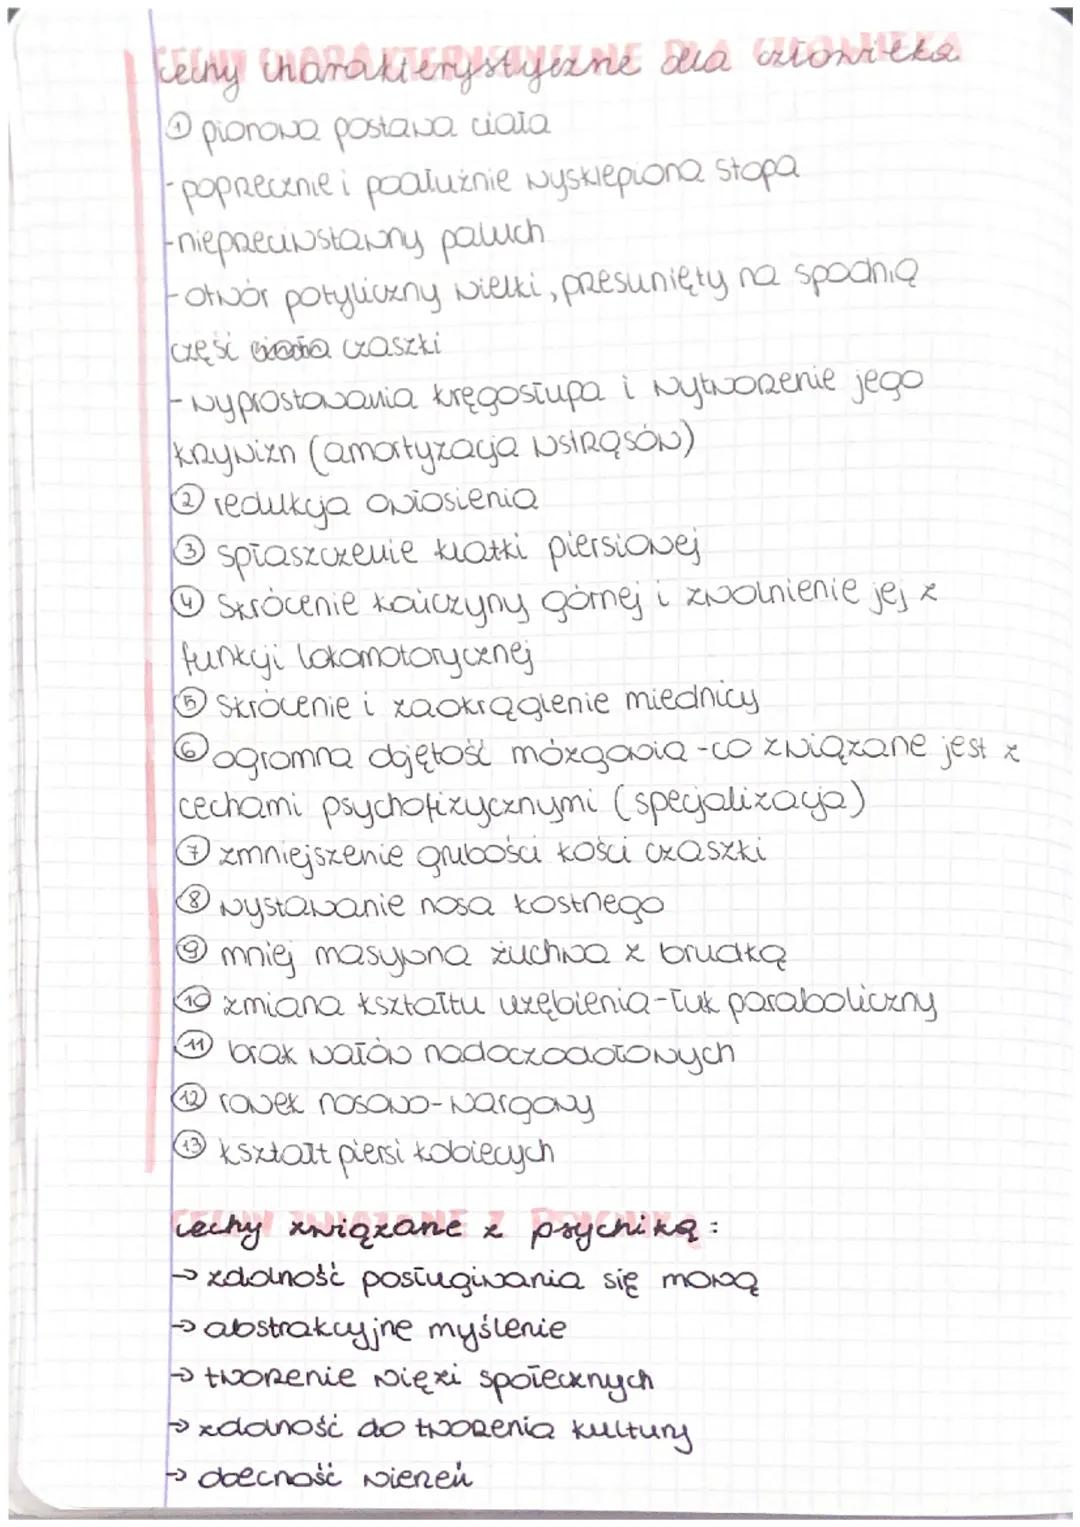 cechy charakterystyczne dla człowieka
① pionowa postawa ciała
- poprzecznie i podłużnie wysklepiona stopa
- nieprzeciwstawny paluch
- otwór potyliczny wielki, przesunięty na spodnią
część czaszki
- wyprostowania kręgosłupa i wytworzenie jego
krzywizn (amortyzacja wstrząsów)
② redukcja owłosienia
③ spłaszczenie klatki piersiowej
④ skrócenie kończyny górnej i zwolnienie jej z
funkcji lokomotorycznej
⑤ skrócenie i zaokrąglenie miednicy
⑥ ogromna objętość mózgowia - co związane jest z
cechami psychofizycznymi (specjalizacja)
⑦ zmniejszenie grubości kości czaszki
⑧ wystawanie nosa kostnego
⑨ mniej masywna żuchwa z brudką
⑩ zmiana kształtu uzębienia - łuk paraboliczny
⑪ brak wałów nadoczodołowych
⑫ rowek nosowo-wargowy
⑬ kształt piersi kobiecych
cechy związane z psychiką:
→ zdolność posługiwania się mową
→ abstrakcyjne myślenie
→ tworzenie więzi społecznych
→ zdolność do tworzenia kultury
→ obecność wierzeń